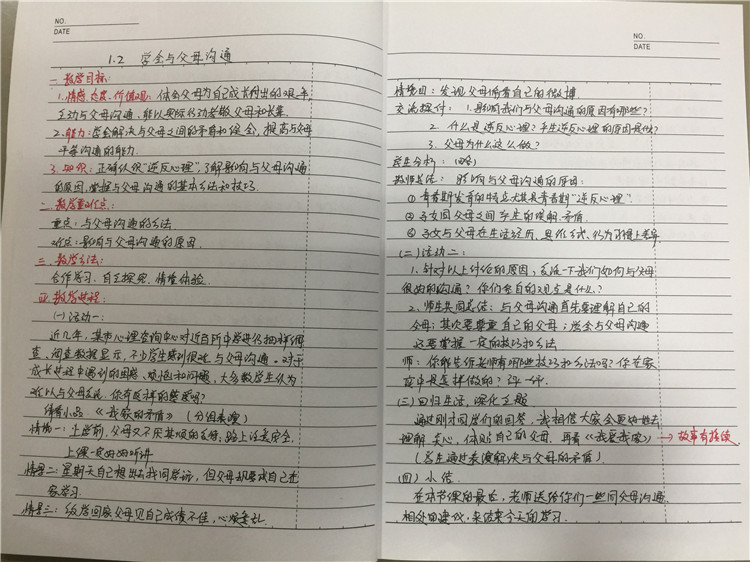 NO.
DATE
1.2 学会与父母沟通
一、教学目标:
1.情感、态度、价值观:体会父母为自己成长付出的艰辛,
主动与父母沟通,能以实际行动孝敬父母和长辈.
2.能力:学会解决与父母之间的矛盾和误会,提高与父母
平等沟通的能力.
3.知识:正确认识"逆反心理",了解影响与父母沟通
的原因,掌握与父母沟通的基本方法和技巧.
二、教学重难点:
重点:与父母沟通的方法
难点:影响与父母沟通的原因.
三、教学方法:
合作学习、自主探究、情境体验.
四、教学过程:
(一)活动一:
近几年,某市心理咨询中心对近百所中学进行抽样调
查,调查数据显示,不少学生感到很难与父母沟通。对于
成长过程中遇到的困惑、烦恼和问题,大多数学生认为
难以与父母交流.你有这样的感受吗?
情景小品《我家的矛盾》(分组表演)
情境一:上学前,父母又不厌其烦的叮嘱:路上注意安全,
上课一定好好听讲
情景二:星期天自己想出去找同学玩,但父母却要求自己在
家学习.
情景三:放学回家父母见自己成绩不佳,心烦意乱.
NO.
DATE
情境四:发现父母偷看自己的微博
交流探讨:1.影响我们与父母沟通的原因有哪些?
2.什么是逆反心理?产生逆反心理的原因是什么?
3.父母为什么这么做?
学生分析:(略)
教师总结:影响与父母沟通的原因:
①青春期发育的特点尤其是青春期"逆反心理".
②子女同父母之间产生的误解、矛盾.
③子女与父母在生活经历、思维方式、行为习惯上差异.
(二)活动二:
1.针对以上讨论的原因,交流一下我们如何与父母
很好的沟通?你们各自的观点是什么?
2.师生共同总结:与父母沟通首先要理解自己的
父母;其次要尊重自己的父母;学会与父母沟通
还要掌握一定的技巧和方法
师:你能告诉老师有哪些技巧和方法吗?你在家
庭中是怎样做的?评一评.
(三)回归生活,深化主题
通过刚才同学们的回答,我相信大家会更好地去
理解、关心、体贴自己的父母.再看《我爱我家》→故事有接续
(学生通过表演解决与父母的矛盾)
(四)小结
在本节课的最后,老师送给你们一些同父母沟通
相处的建议,来结束今天的学习.